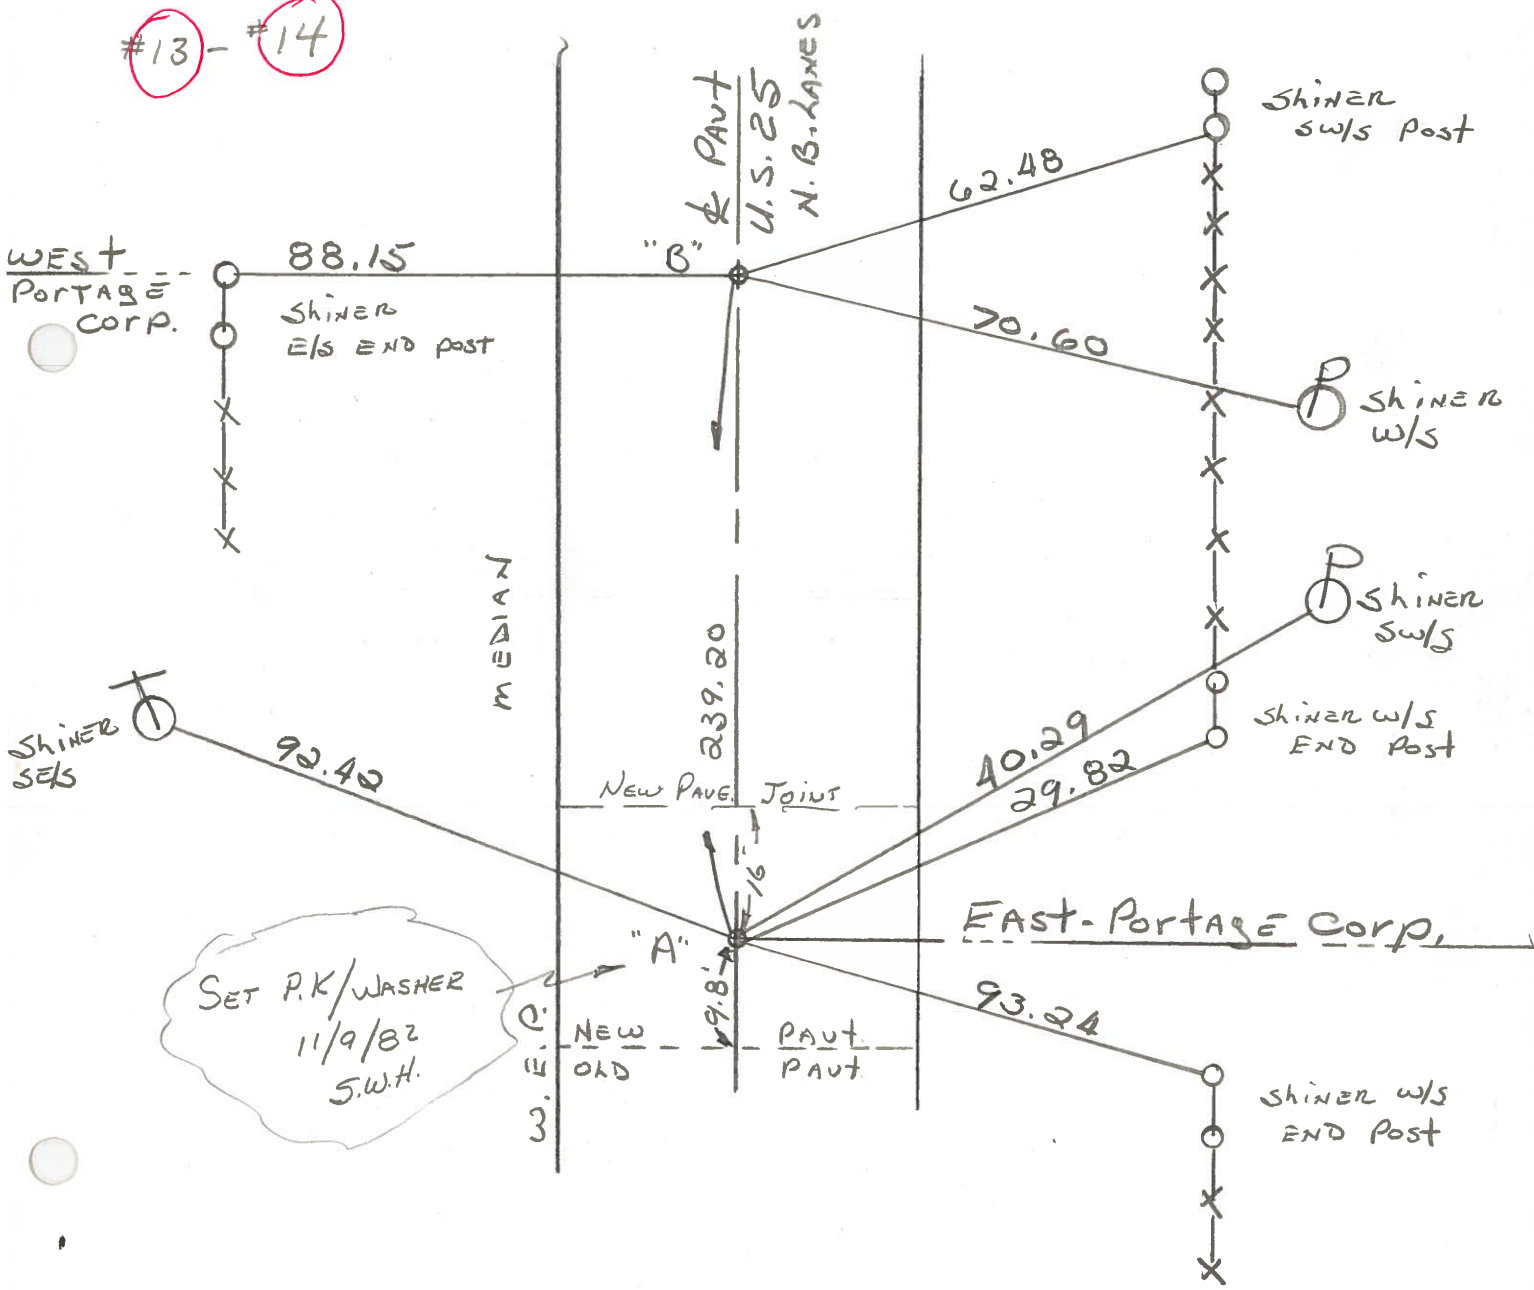 #13 - #14
℄ PAVT
U.S. 25
N. B. LANES
ShiNER
SW/S Post
62.48
WEST
PORTAGE
CORP.
88.15
"B"
ShiNER
E/S END Post
70.60
ShiNER
W/S
MEDIAN
239.20
ShiNER
SW/S
ShiNER
SE/S
92.42
40.29
29.82
ShiNER W/S
END Post
NEW PAVE. JOINT
16'
"A"
EAST-PORTAGE CORP.
SET P.K/WASHER
11/9/82
S.W.H.
9.8'
93.24
NEW PAVT
OLD PAVT
ShiNER W/S
END Post